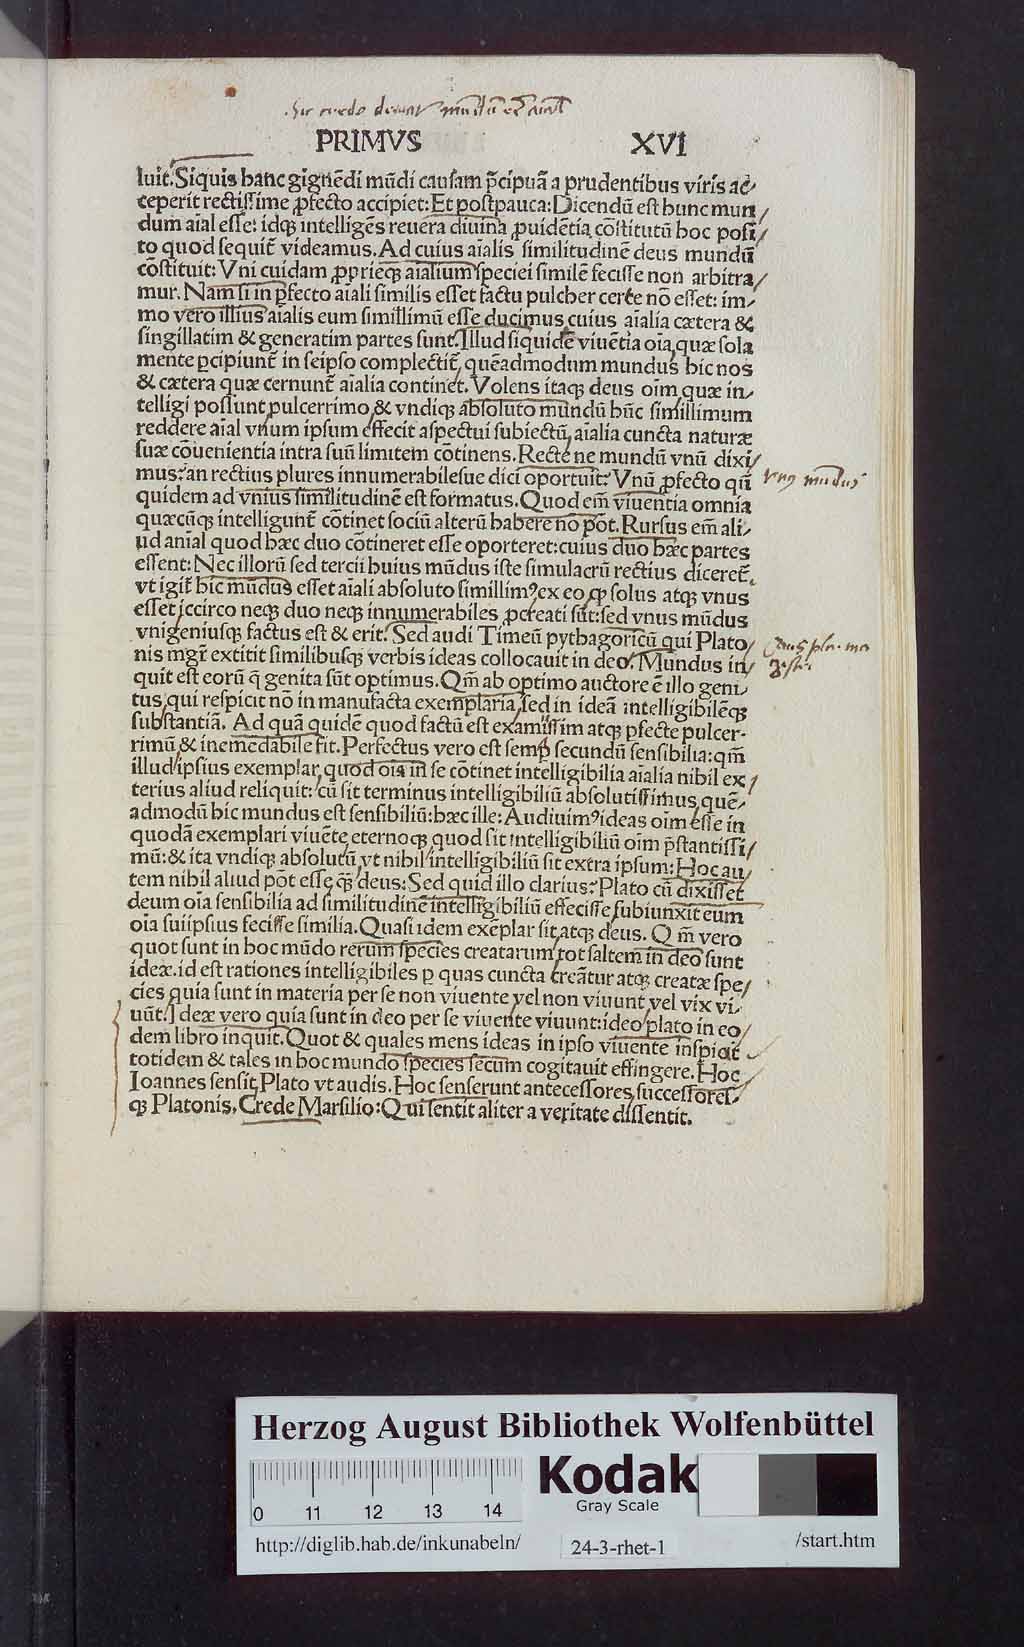 mūdū eē aīal
PRIMVS XVI
luit. Siquis hanc gignēdi mūdi causam p̄cipuā a prudentibus viris ac/
ceperit rectissime ꝓfecto accipiet: Et postpauca: Dicendū est hunc mun/
dum aīal esse: idqꝫ intelligēs reuera diuina ꝓuidētia cōstitutū hoc posi/
to quod sequit̄ videamus. Ad cuius aīalis similitudinē deus mundū
cōstituit: Vni cuidam ꝓprieqꝫ aīalium speciei similē fecisse non arbitra/
mur. Nam si in ꝑfecto aīali similis esset factu pulcher certe nō esset: im/
mo vero illius aīalis eum simillimū esse ducimus cuius aīalia cætera &
singillatim & generatim partes sunt. Illud siquidē viuētia oīa, quæ sola
mente ꝑcipiunt̄ in seipso complectit̄, quēadmodum mundus hic nos
& cætera quæ cernunt̄ aīalia continet. Volens itaqꝫ deus oīm, quæ in/
telligi possunt, pulcerrimo, & vndiqꝫ absoluto mundū hūc simillimum
reddere aīal vnum ipsum effecit aspectui subiectū, aīalia cuncta naturæ
suæ cōuenientia intra suū limitem cōtinens. Recte ne mundū vnū dixi/
mus: an rectius plures innumerabilesue dici oportuit: Vnū ꝓfecto qn̄
quidem ad vnius similitudinē est formatus. Quod em̄ viuentia omnia
quæcūqꝫ intelligunt̄ cōtinet sociū alterū habere nō pōt. Rursus em̄ ali/
ud anīal quod hæc duo cōtineret esse oporteret: cuius duo hæc partes
essent: Nec illorū sed tercii huius mūdus iste simulacrū rectius diceret̄.
vt igit̄ hic mūdus esset aīali absoluto simillimꝰ, ex eo ꝙ solus atqꝫ vnus
esset, iccirco neqꝫ duo neqꝫ innumerabiles ꝓcreati sūt: sed vnus mūdus
vnigeniusqꝫ factus est & erit. Sed audi Timeū pythagoricū qui Plato/
nis mgr̄ extitit similibusqꝫ verbis ideas collocauit in deo. Mundus in/
quit est eorū q̄ genita sūt optimus. Qm̄ ab optimo auctore ē illo geni/
tus, qui respicit nō in manufacta exemplaria, sed in ideā intelligibilēqꝫ
substantiā. Ad quā quidē quod factū est examissim atqꝫ ꝑfecte pulcer-
rimū & inemēdabile fit. Perfectus vero est semp̄ secundū sensibilia: qm̄
illud ipsius exemplar, quod oīa in se cōtinet intelligibilia aīalia nihil ex/
terius aliud reliquit: cū sit terminus intelligibiliū absolutissimus, quē/
admodū hic mundus est sensibiliū: hæc ille: Audiuimꝰ ideas oīm esse in
quodā exemplari viuēte eternoqꝫ quod sit intelligibiliū oīm p̄stantissi/
mū: & ita vndiqꝫ absolutū, vt nihil intelligibiliū sit extra ipsum: Hoc au/
tem nihil aliud pōt esse q̄ꝫ deus: Sed quid illo clarius: Plato cū dixisset
deum oīa sensibilia ad similitudinē intelligibiliū effecisse, subiunxit eum
oīa suiipsius fecisse similia. Quasi idem exēplar sit, atqꝫ deus. Qm̄ vero
quot sunt in hoc mūdo rerum species creatarum, tot saltem in deo sunt
ideæ. id est rationes intelligibiles ꝑ quas cuncta creātur atqꝫ creatæ spe/
cies quia sunt in materia per se non viuente, vel non viuunt, vel vix vi/
uūt. Ideæ vero quia sunt in deo per se viuente viuunt: ideo plato in eo/
dem libro inquit. Quot & quales mens ideas in ipso viuente inspicit
totidem & tales in hoc mundo species secum cogitauit effingere. Hoc
Ioannes sensit, Plato vt audis. Hoc senserunt antecessores, successores/
qꝫ Platonis, Crede Marsilio: Qui sentit aliter a veritate dissentit.
vnꝰ mūdus
Herzog August Bibliothek Wolfenbüttel
0 11 12 13 14
Kodak
Gray Scale
http://diglib.hab.de/inkunabeln/ 24-3-rhet-1 /start.htm